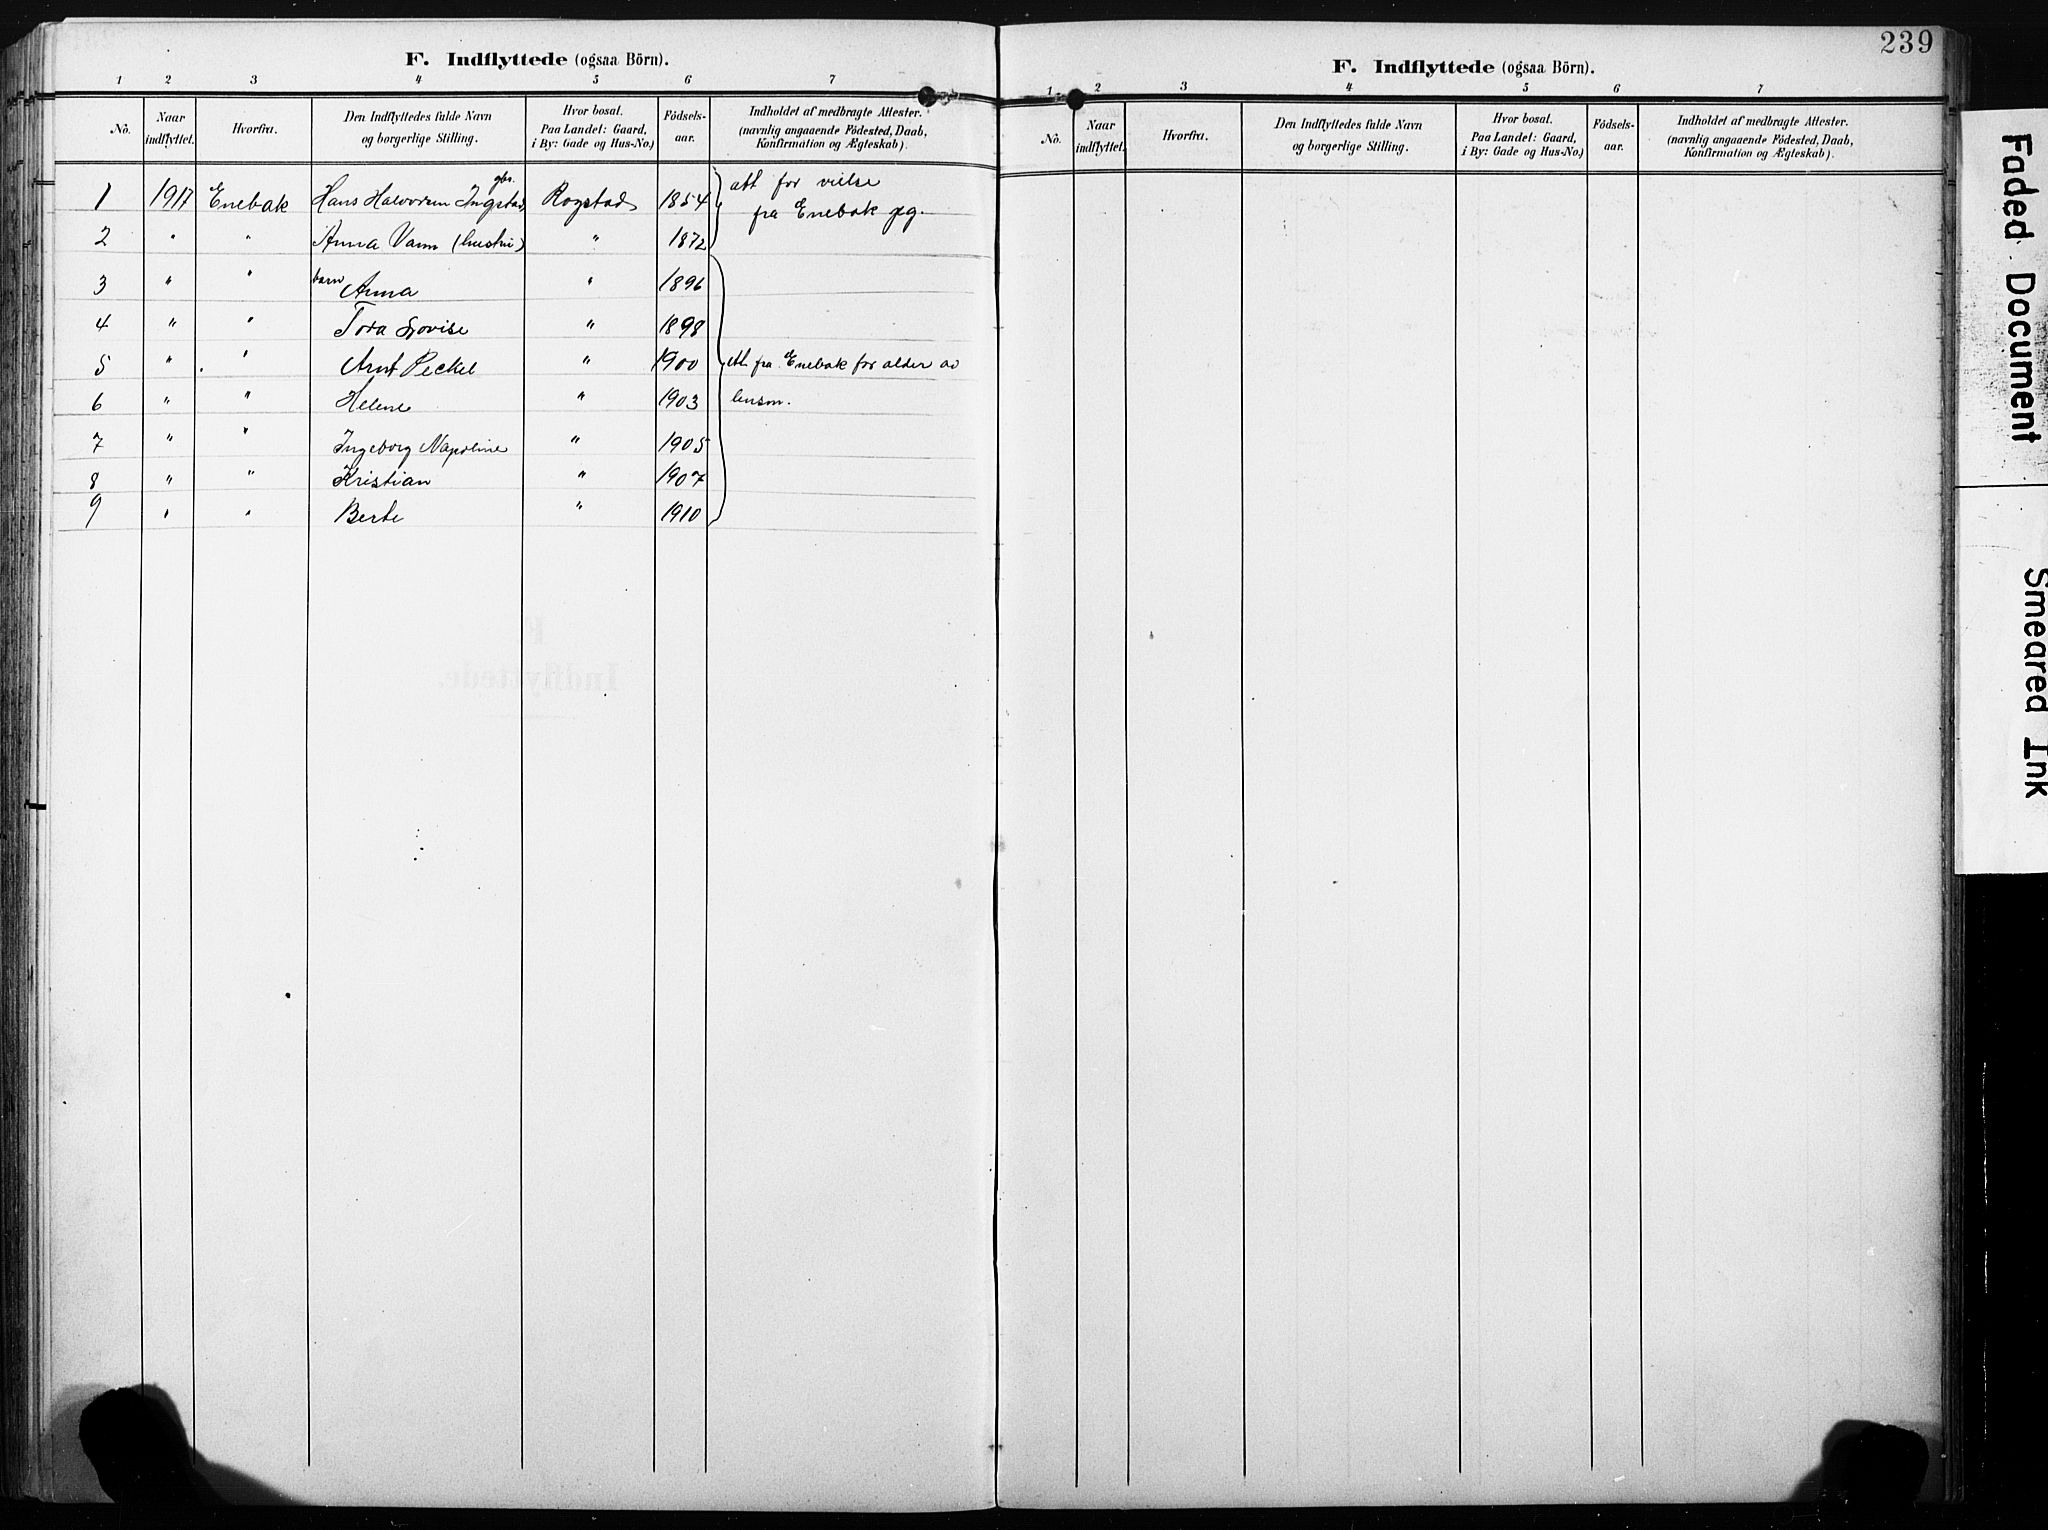 F. Indflyttede (ogsaa Börn).
1 2 3 4 5 6 7
No. Naar indflyttet. Hvorfra. Den Indflyttedes fulde Navn og borgerlige Stilling. Hvor bosat. Paa Landet: Gaard, i By: Gade og Hus-No.) Födsels-aar. Indholdet af medbragte Attester. (navnlig angaaende Födested, Daab, Konfirmation og Ægteskab).
1 1917 Enebak Hans Halvorsen Ingstad, gbr. Rogstad 1854 att for vielse
fra Enebak pg.
2 " " Anna Vam (hustru) " 1872
3 " " barn Anna " 1896
4 " " Tora Lovise " 1898
5 " " Arnt Peckel " 1900 att. fra Enebak for alder av
6 " " Helene " 1903 lensm.
7 " " Ingeborg Napoline " 1905
8 " " Kristian " 1907
9 " " Berte " 1910
239
F. Indflyttede (ogsaa Börn).
1 2 3 4 5 6 7
No. Naar indflyttet. Hvorfra. Den Indflyttedes fulde Navn og borgerlige Stilling. Hvor bosat. Paa Landet: Gaard, i By: Gade og Hus-No.) Födsels-aar. Indholdet af medbragte Attester. (navnlig angaaende Födested, Daab, Konfirmation og Ægteskab).
Faded Document
Smeared Ink